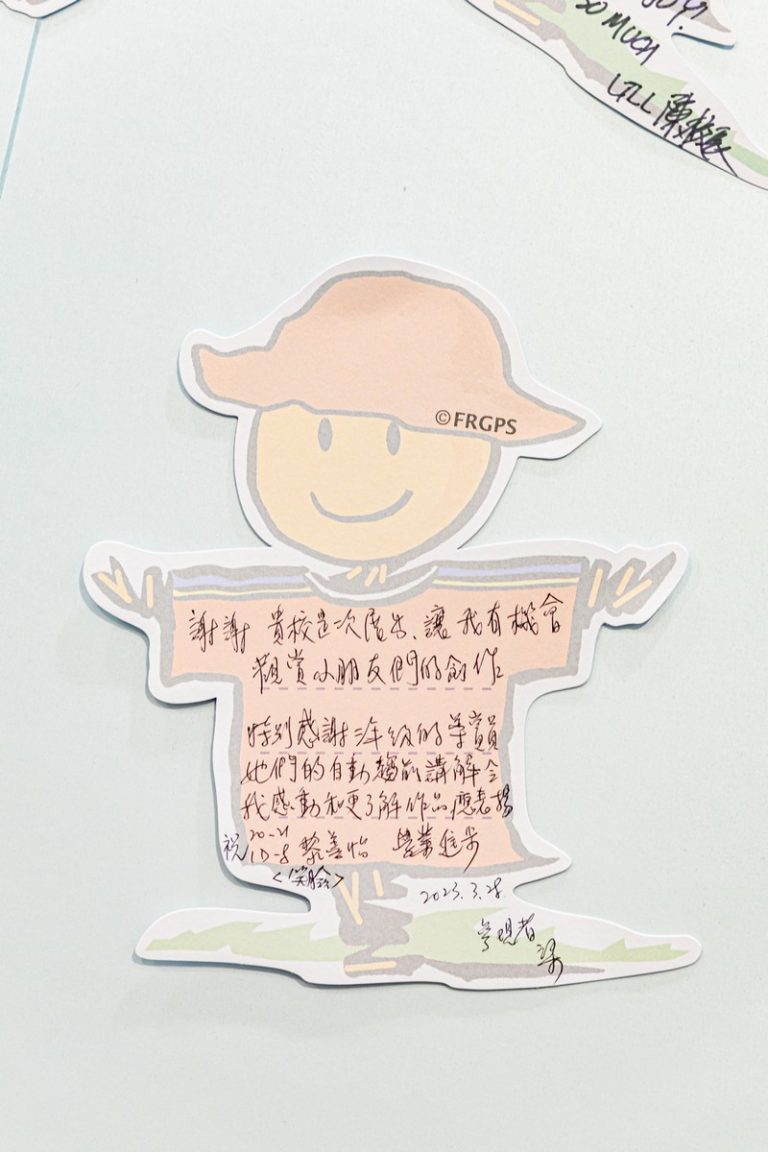 SO MUCH
©FRGPS
謝謝 貴校這次展出、讓我有機會
觀賞小朋友們的創作
特別感謝六年級的導賞員
她們的自動趨前講解令
我感動和更了解作品 應表揚
20-21
祝 1D-8 黎善怡 學業進步
<笑臉>
2023.3.28
參觀者
梁